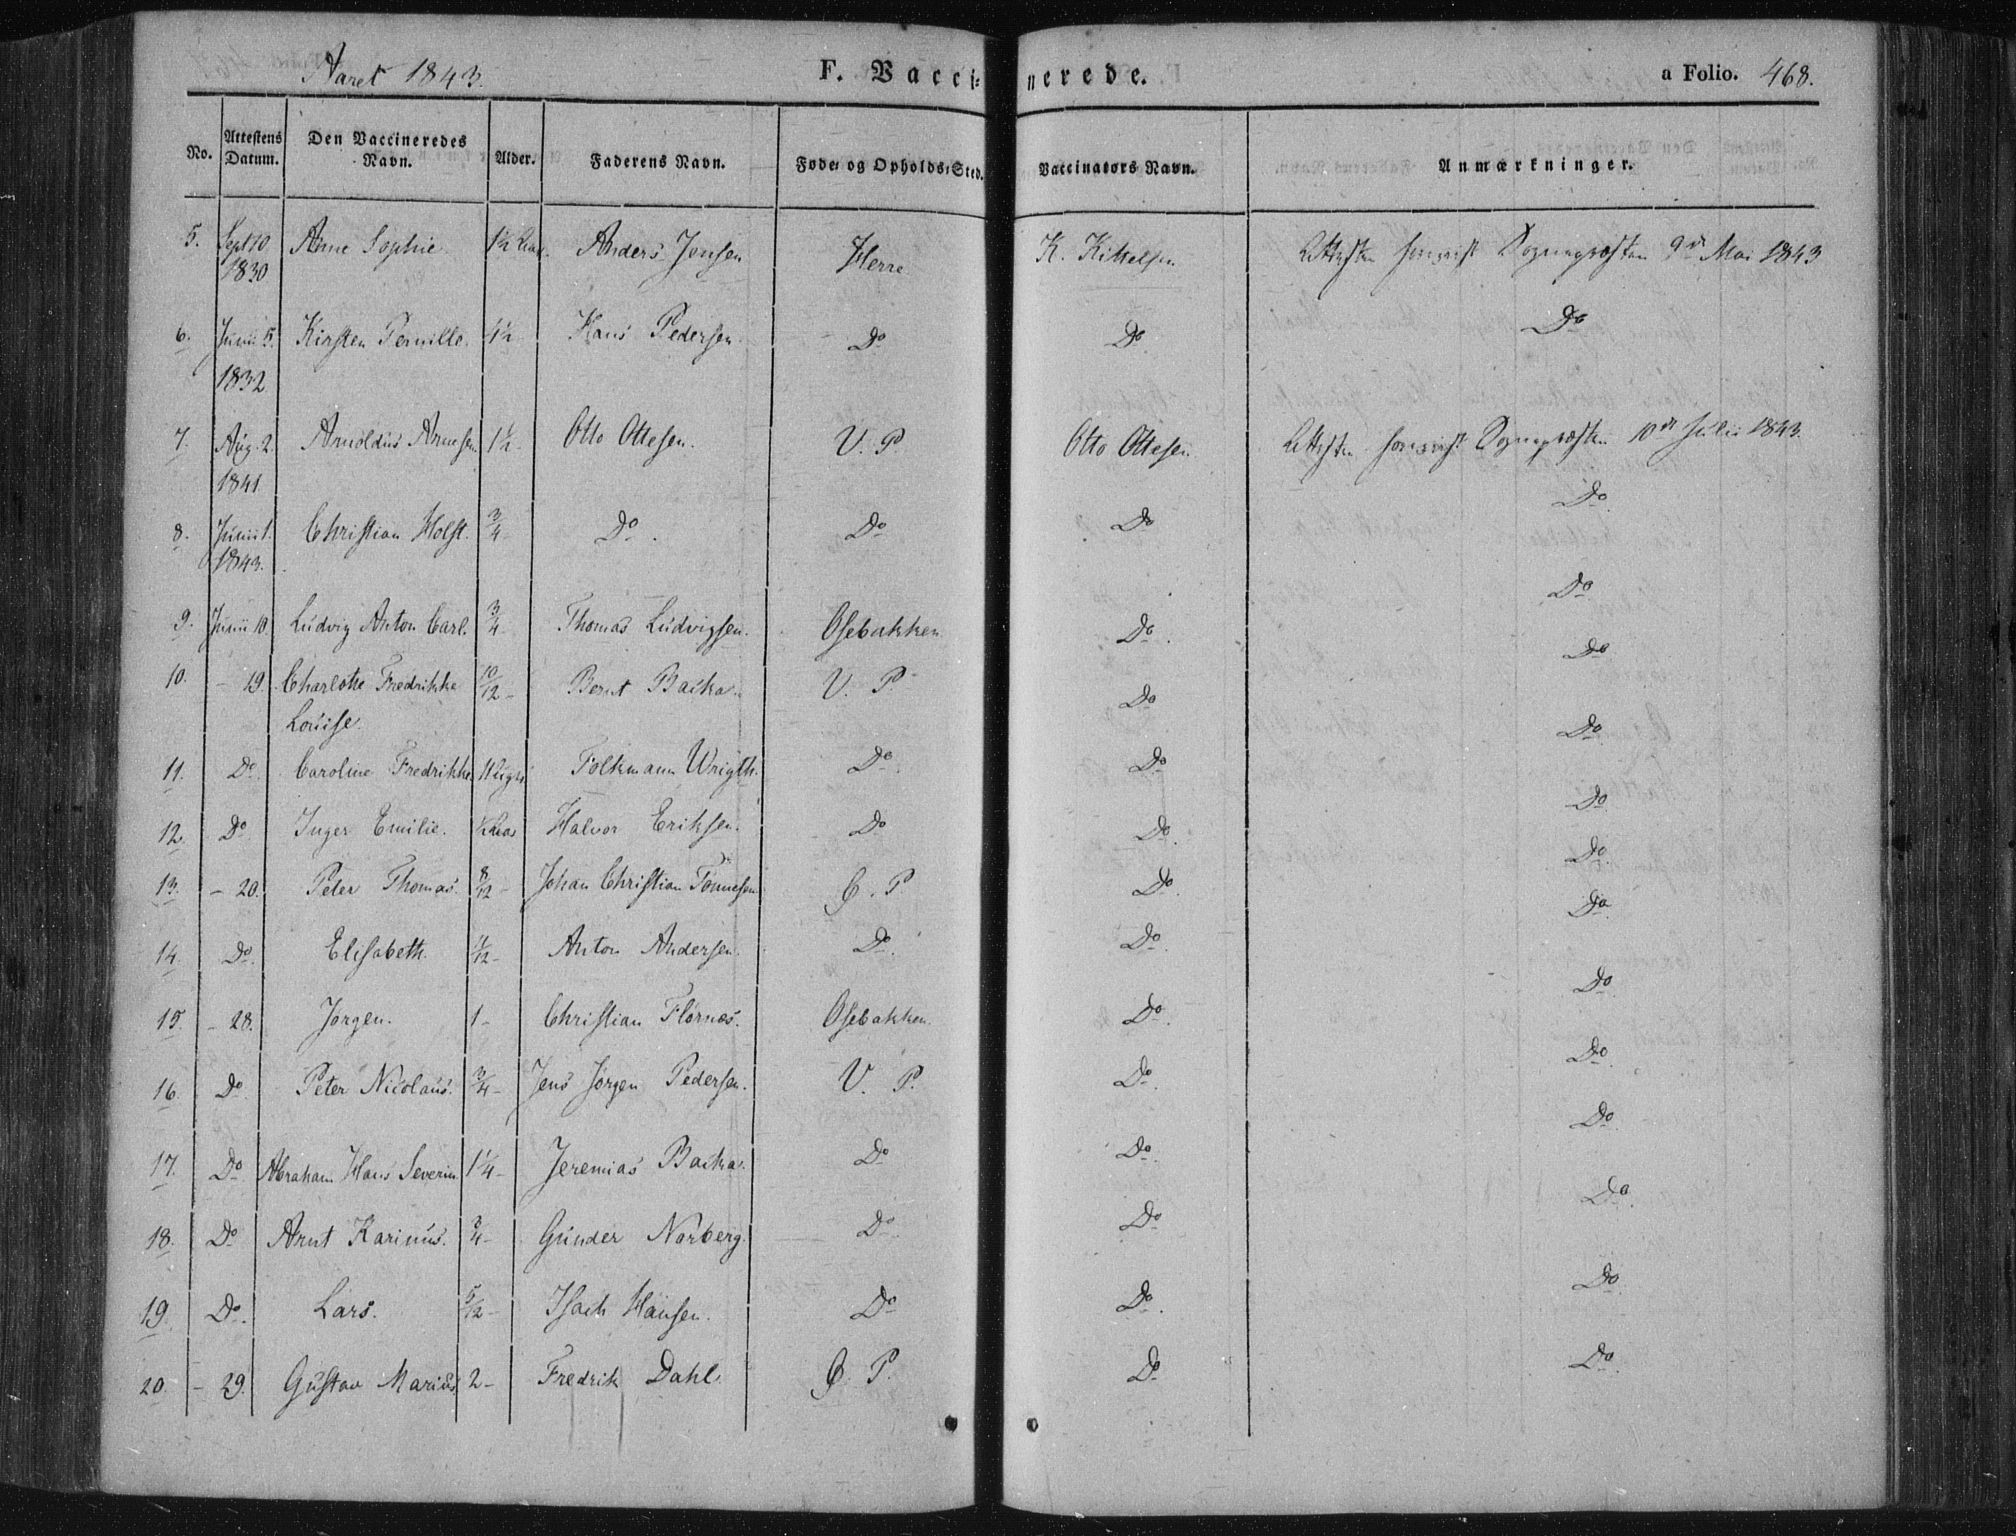 Aaret 1843. F. Vaccinerede. a Folio. 468.
No. Attestens Datum. Den Vaccineredes Navn. Alder. Faderens Navn. Føde- og Opholds-Sted. Vaccinators Navn. Anmærkninger.
5. Sept 10 1830 Anne Sophie. 1½ Anders Jensen Herre K. Kittelsen Attesten Sognepræsten 9de Mai 1843
6. Junii 5. 1832 Kirsten Pernille. 1½ Hans Pedersen. Do Do Do
7. Aug. 2. 1841. Arnoldus Arnesen 1½ Otto Ottesen. V. P. Otto Ottesen Attesten Sognepræsten 10de Julii 1843.
8. Junii 1. 1843. Christian Holst. 3/4 Do. Do Do Do
9. Junii 10. Ludvig Anton Carl. 3/4 Thomas Ludvigsen. Osebakken Do. Do
10. - 19. Charlotte Fredrikke Louise. 10/12 Bernt Backa. V. P. Do Do
11. Do Caroline Fredrikke Folkmann Wrigth. Do. Do Do
12. Do Inger Emilie. Halvor Eriksen. Do Do Do
13. - 20. Peter Thomas. 8/12 Johan Christian Tønnesen Ø. P Do. Do.
14. Do. Elisabeth. 11/12 Anton Andersen. Do. Do. Do.
15. - 28. Jørgen. 1 - Christian Flornæs. Osebakken. Do. Do
16. Do. Peter Nicolaus. 3/4 Jens Jørgen Pedersen. V. P. Do. Do.
17. Do Abraham Hans Severin 1¼ Jeremias Backa. Do Do. Do.
18. Do Arnt Karinus. 3/4 Gunder Norberg. Do Do Do.
19. Do. Lars. 5/12 Isach Hansen. Do Do. Do.
20. - 29. Gustav Marius 2 - Fredrik Dahl. Ø. P. Do Do.